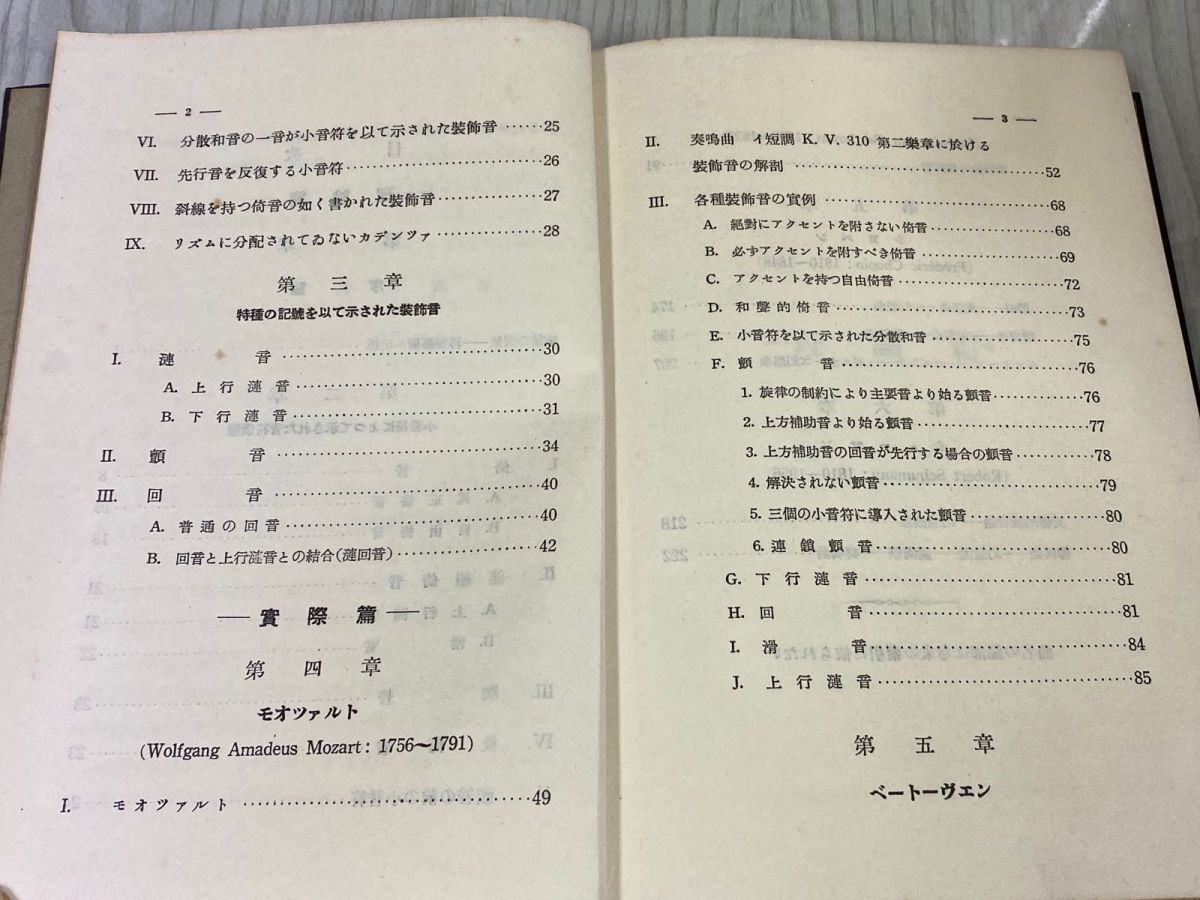 — 2 —
VI. 分散和音の一音が小音符を以て示された裝飾音 ……25
VII. 先行音を反復する小音符 ……………………26
VIII. 斜線を持つ倚音の如く書かれた裝飾音 …………27
IX. リズムに分配されてゐないカデンツァ …………28
第三章
特種の記號を以て示された裝飾音
I. 漣音 ……………………………30
A. 上行漣音 ……………………………30
B. 下行漣音 ……………………………31
II. 顫音 ……………………………34
III. 回音 ……………………………40
A. 普通の回音 ……………………………40
B. 回音と上行漣音との結合(漣回音) ………………42
— 實際篇 —
第四章
モオツァルト
(Wolfgang Amadeus Mozart: 1756~1791)
I. モオツァルト ……………………………49
— 3 —
II. 奏鳴曲 イ短調 K. V. 310 第二樂章に於ける
裝飾音の解剖 ……………………………52
III. 各種裝飾音の實例 ……………………………68
A. 絕對にアクセントを附さない倚音 ………………68
B. 必ずアクセントを附すべき倚音 ………………69
C. アクセントを持つ自由倚音 ……………………72
D. 和聲的倚音 ……………………………73
E. 小音符を以て示された分散和音 ………………75
F. 顫音 ……………………………76
1. 旋律の制約により主要音より始る顫音 …………76
2. 上方補助音より始る顫音 ……………………77
3. 上方補助音の回音が先行する場合の顫音 ………78
4. 解決されない顫音 ……………………………79
5. 三個の小音符に導入された顫音 ………………80
6. 連鎖顫音 ……………………………80
G. 下行漣音 ……………………………81
H. 回音 ……………………………81
I. 滑音 ……………………………84
J. 上行漣音 ……………………………85
第五章
ベートーヴエン